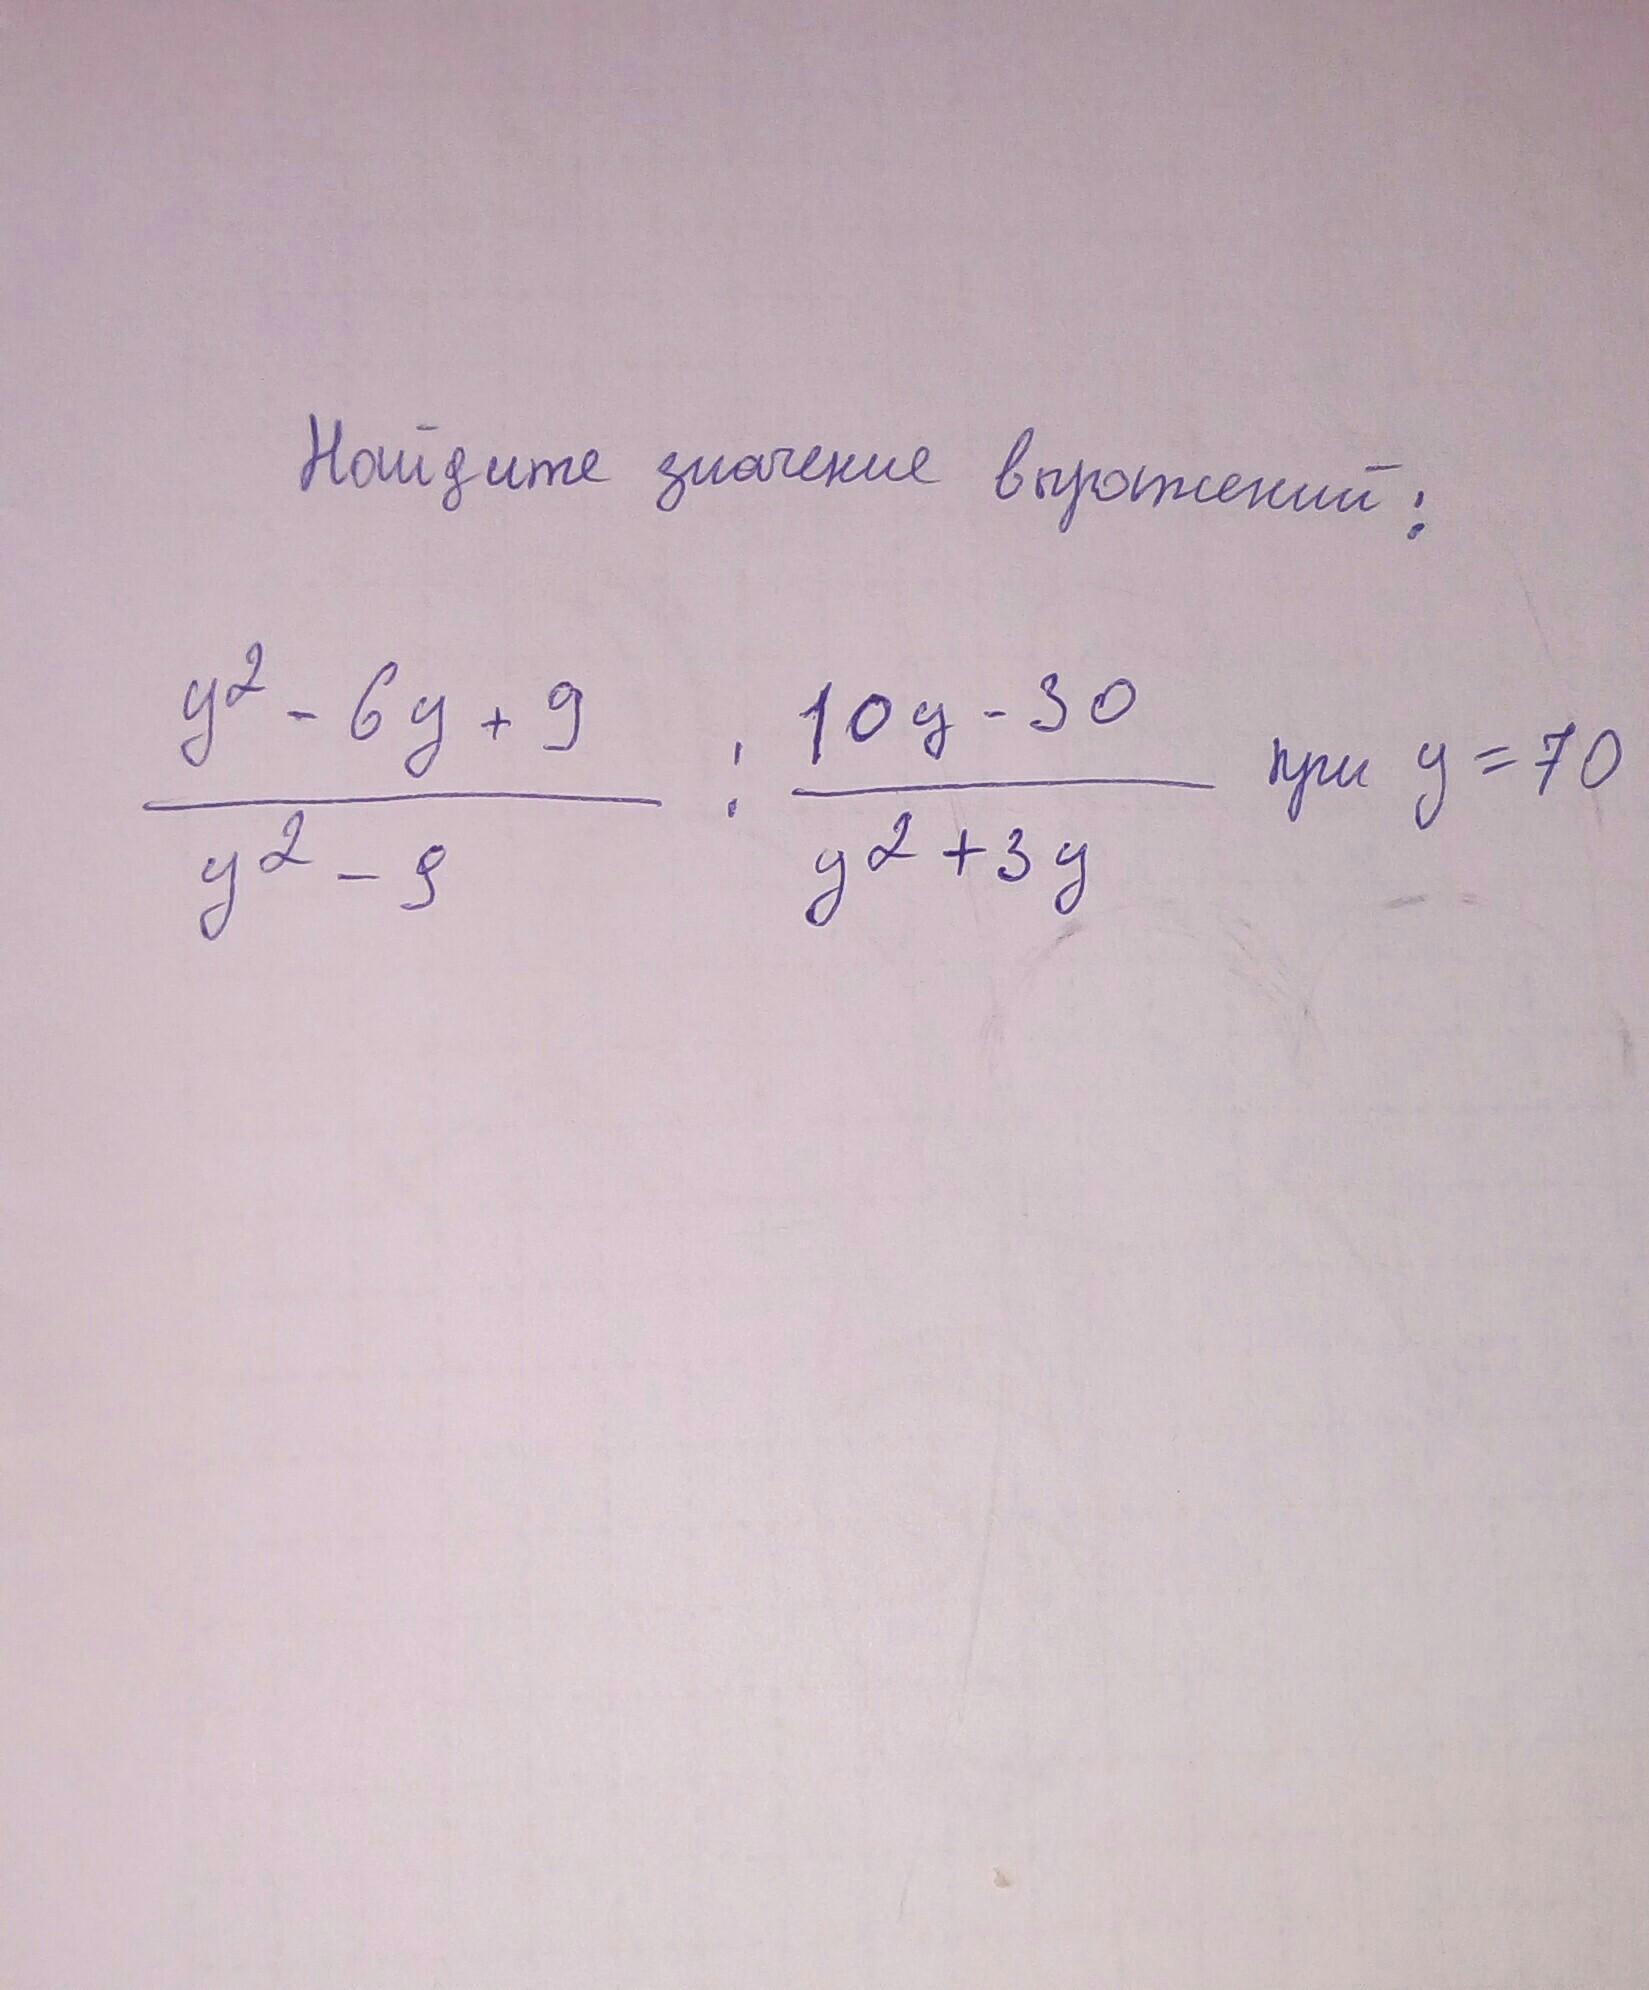 Найдите значение выражений:
y² - 6y + 9 / y² - 9 : 10y - 30 / y² + 3y при y = 70